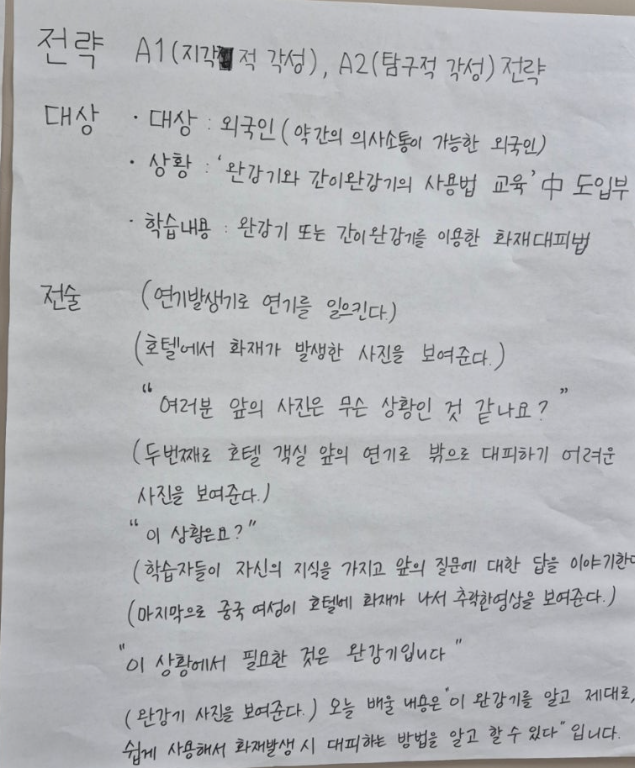 전략 A1(지각적 각성), A2(탐구적 각성) 전략
대상 · 대상 : 외국인 (약간의 의사소통이 가능한 외국인)
· 상황 : '완강기와 간이완강기의 사용법 교육' 中 도입부
· 학습내용 : 완강기 또는 간이완강기를 이용한 화재대피법
전술 (연기발생기로 연기를 일으킨다.)
(호텔에서 화재가 발생한 사진을 보여준다.)
"여러분 앞의 사진은 무슨 상황인 것 같나요?"
(두번째로 호텔 객실 앞의 연기로 밖으로 대피하기 어려운
사진을 보여준다.)
"이 상황은요?"
(학습자들이 자신의 지식을 가지고 앞의 질문에 대한 답을 이야기한
(마지막으로 중국 여성이 호텔에 화재가 나서 추락한영상을 보여준다.)
"이 상황에서 필요한 것은 완강기입니다"
(완강기 사진을 보여준다.) 오늘 배울 내용은 "이 완강기를 알고 제대로,
쉽게 사용해서 화재발생 시 대피하는 방법을 알고 할 수 있다" 입니다.